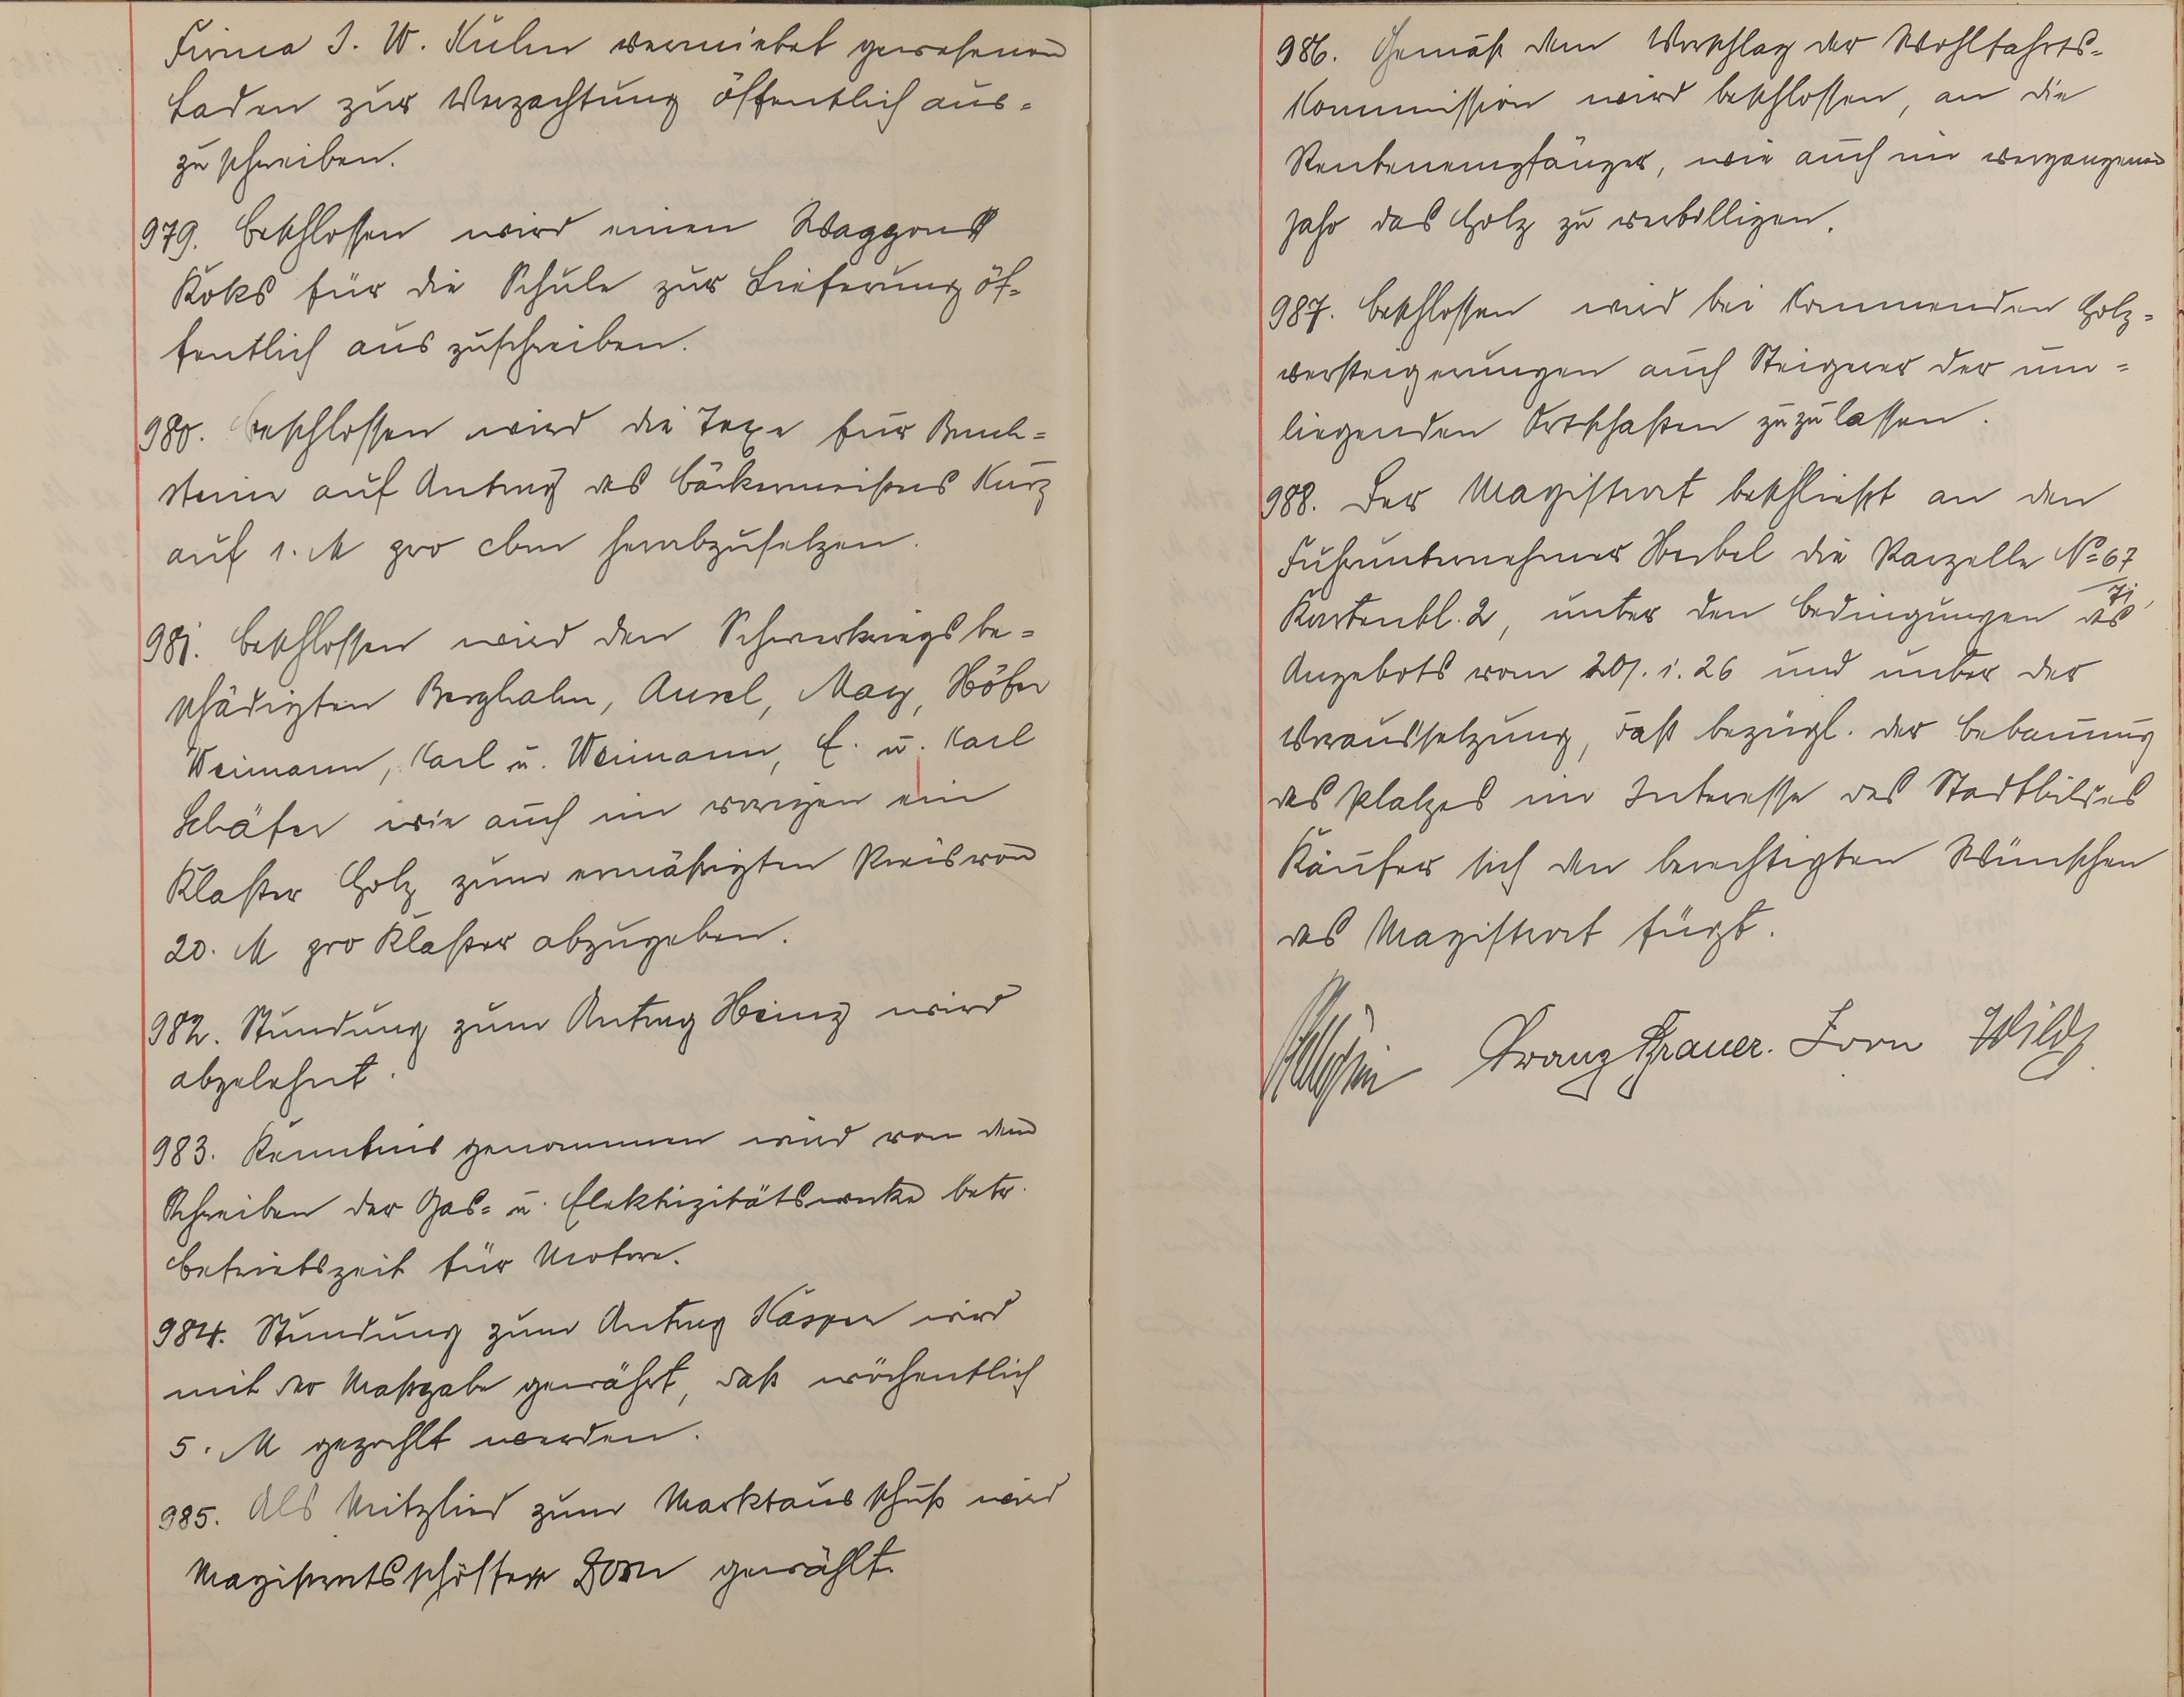 Firma J. W. Kuhn vermietet gewesenen
Laden zur Verpachtung öffentlich aus-
zuschreiben.
979. Beschlossen wird einen Waggon
Koks für die Schule zur Lieferung öf-
fentlich auszuschreiben.
980. Beschlossen wird die Taxe für Bruch-
steine auf Antrag des Bäckermeisters Kurz
auf 1. M pro cbm herabzusetzen.
981. Beschlossen wird den Schwerkriegsbe-
schädigten Berghahn, Aurel, May, Höfer
Weimann, Karl u. Weimann, E. u. Karl
Schäfer wie auch im vorigen ein
Klafter Holz zum ermäßigten Preis von
20. M pro Klafter abzugeben.
982. Stundung zum Antrag Heinz wird
abgelehnt.
983. Kenntnis genommen wird von dem
Schreiben der Gas- u. Elektrizitätswerke betr.
Betriebszeit für Motore.
984. Stundung zum Antrag Kasper wird
mit der Maßgabe gewährt, daß wöchentlich
5. M gezahlt werden.
985. Als Mitglied zum Marktausschuß wird
Magistratsschöffen Dorn gewählt.
986. Gemäß dem Vorschlag der Wohlfahrts-
Kommission wird beschlossen, an die
Rentenempfänger, wie auch im vergangenen
Jahr das Holz zu verbilligen.
987. Beschlossen wird bei kommenden Holz-
versteigerungen auch Steigerer der um-
liegenden Ortschaften zuzulassen.
988. Der Magistrat beschließt an den
Fuhrunternehmer Herbel die Parzelle No 67/71,
Kartenbl. 2, unter den Bedingungen des
Angebots vom 20. 1. 26 und unter der
Voraussetzung, daß bezügl. der Bebauung
des Platzes im Interesse des Stadtbildes
Käufer sich den berechtigten Wünschen
des Magistrat fügt.
Franz Grauer. Dorn Wild